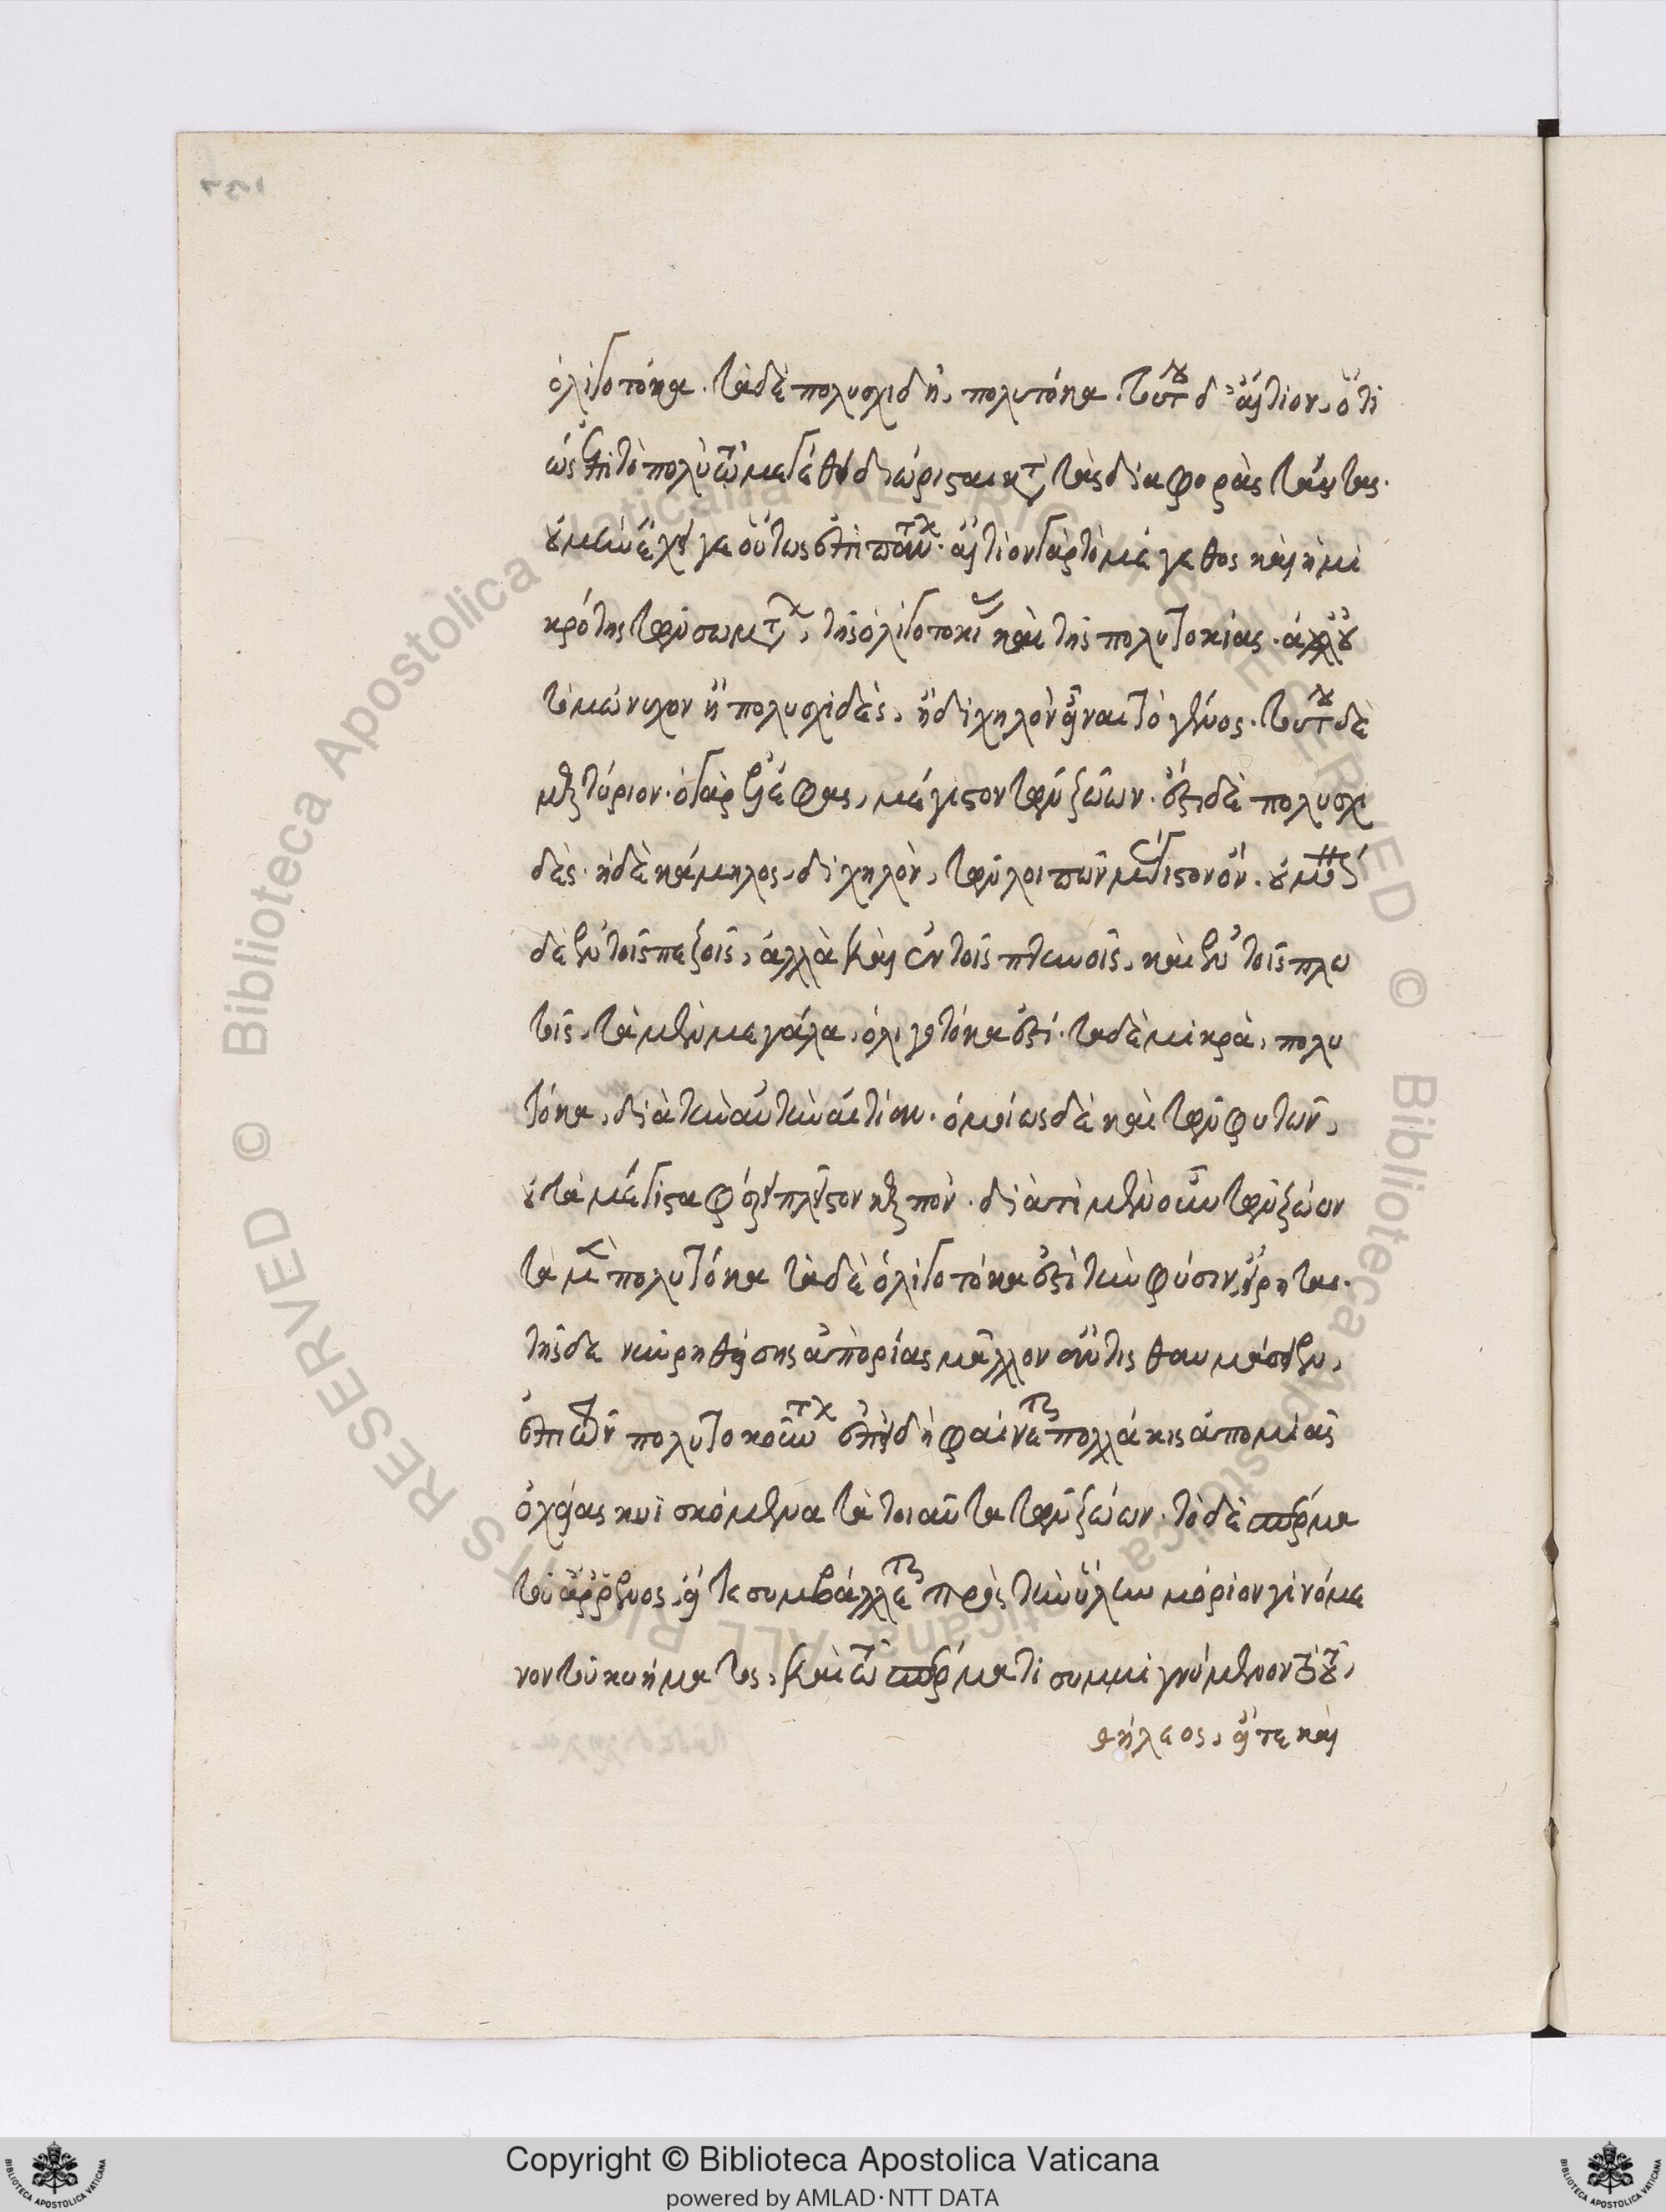 ὀλιγοτόκα. τὰ δὲ πολυσχιδῆ, πολυτόκα. τούτου δ' αἴτιον, ὅτι
ὡς ἐπὶ τὸ πολὺ τῷ μεγέθει διώρισται κατὰ τὰς διαφορὰς ταύτας.
οὐ μὴν ἔχει γε οὕτως ἐπὶ πάντων. αἴτιον γὰρ τὸ μέγεθος καὶ ἡ μι
κρότης τῶν σωμάτων, τῆς ὀλιγοτοκίας καὶ τῆς πολυτοκίας. ἀλλ' οὐ
τὸ μώνυχον ἢ πολυσχιδὲς, ἢ διχηλὸν εἶναι τὸ γένος. τούτου δὲ
μαρτύριον. ὁ γὰρ ἐλέφας, μέγιστον τῶν ζώων. ἐστὶ δὲ πολυσχι
δὲς. ἡ δὲ κάμηλος, διχηλὸν, τῶν λοιπῶν μέγιστον ὄν. οὐ μόνον
δὲ ἐν τοῖς πεζοῖς, ἀλλὰ καὶ ἐν τοῖς πτηνοῖς, καὶ ἐν τοῖς πλω
τοῖς, τὰ μὲν μεγάλα, ὀλιγοτόκα ἐστί. τὰ δὲ μικρὰ, πολυ
τόκα, διὰ τὴν αὐτὴν αἰτίαν. ὁμοίως δὲ καὶ τῶν φυτῶν,
οὐ τὰ μέγιστα φέρει πλεῖστον καρπόν. διὰ τί μὲν οὖν τῶν ζώων
τὰ μὲν πολυτόκα τὰ δὲ ὀλιγοτόκα ἐστὶ τὴν φύσιν, εἴρηται.
τῆς δὲ νῦν ῥηθείσης ἀπορίας μᾶλλον ἄν τις θαυμάσειεν,
ἐπὶ τῶν πολυτοκούντων ἐπειδὴ φαίνεται πολλάκις ἀπὸ μιᾶς
ὀχείας κυϊσκόμενα τὰ τοιαῦτα τῶν ζώων. τὸ δὲ σπέρμα
τοῦ ἄρρενος, εἴτε συμβάλλεται πρὸς τὴν ὕλην μόριον γινόμε
νον τοῦ κυήματος, καὶ τῷ σπέρματι συμμιγνύμενον τοῦ,
θήλεος, εἴτε καὶ
Copyright © Biblioteca Apostolica Vaticana
powered by AMLAD·NTT DATA